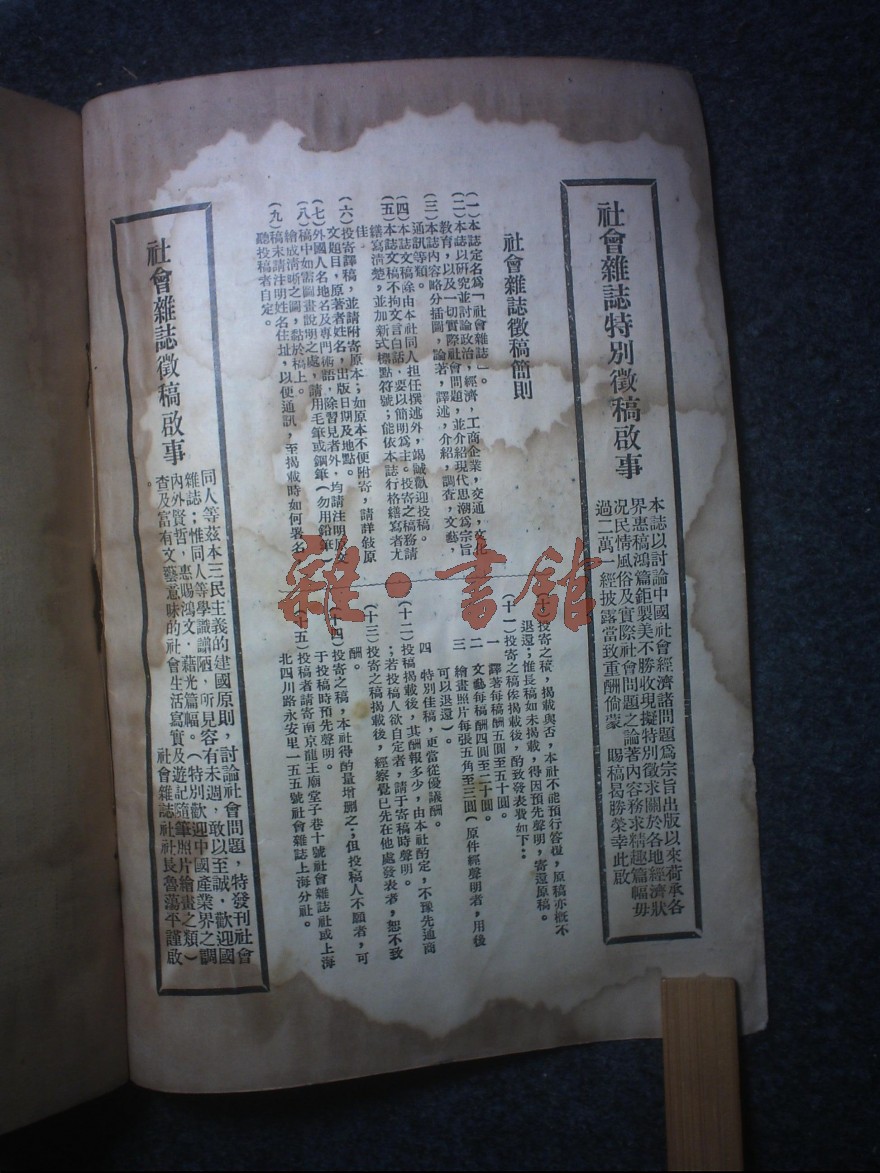 社會雜誌特別徵稿啟事
本誌以討論中國社會經濟諸問題爲宗旨出版以來荷承各
界惠稿鴻篇鉅製美不勝收現擬特別徵求關於各地經濟狀
況民情風俗及實際社會問題之論著內容務求精趣篇幅毋
過二萬一經披露當致重酬倘蒙 賜稿曷勝榮幸此啟
社會雜誌徵稿簡則
(一)本誌定名爲「社會雜誌」。
(二)本誌以研究並討論政治,經濟,工商企業,交通,文化
教育,以及一切實際社會問題,並介紹現代思潮爲宗旨
(三)本誌內容略分插圖,論著,譯述,介紹,調查,文藝,
通訊等類。
(四)本誌文稿除由本社同人担任撰述外,竭誠歡迎投稿。
(五)本誌文稿不拘文言白話,要以簡明爲主。投寄之稿務請
繕寫清楚,並加新式標點符號;能依本誌行格繕寫者尤
佳。
(六)投寄譯稿,並請附寄原本;如原本不便附寄,請詳敍原
文題目,原著者姓名,出版日期及地點。
(七)外國人名地名及專門術語,除習見者外,均請注明原文
(八)稿中如需圖畫說明之處,請用毛筆或鋼筆(勿用鉛筆)
繪成清晰之圖,黏於稿上。
(九)稿末請注明姓名住址,以便通訊,至揭載時如何署名
聽投稿者自定。
(十)投寄之稿,揭載與否,本社不能預行答復,原稿亦概不
退還;惟長稿如未揭載,得因預先聲明,寄還原稿。
(十一)投寄之稿俟揭載後,酌致發表費如下:
一 譯著每稿酬五圓至五十圓。
二 文藝每稿酬四圓至二十圓。
三 繪畫照片每張五角至三圓(原件經聲明者,用後
可以退還)。
四 特別佳稿,更當從優議酬。
(十二)投稿揭載後,其酬報多少,由本社酌定,不豫先通商
;若投稿人欲自定者,請于寄稿時聲明。
(十三)投寄之稿揭載後,經察覺已先在他處發表者,恕不致
酬。
(十四)投寄之稿,本社得酌量增删之;但投稿人不願者,可
于投稿時預先聲明。
(十五)投稿者請寄南京龍王廟堂子巷十號社會雜誌社或上海
北四川路永安里一五五號社會雜誌上海分社。
社會雜誌徵稿啟事
同人等茲本三民主義的建國原則,討論社會問題,特發刊社會
雜誌;惟同人等學識譾陋,所見容有未週,敢以至誠,歡迎國
內外賢哲,惠賜鴻文,藉光篇幅。(特別歡迎中國產業界之調
查及富有文藝意味的社會生活寫實及遊記隨筆照片繪畫之類)
。
社會雜誌社社長魯蕩平謹啟
雜·書館